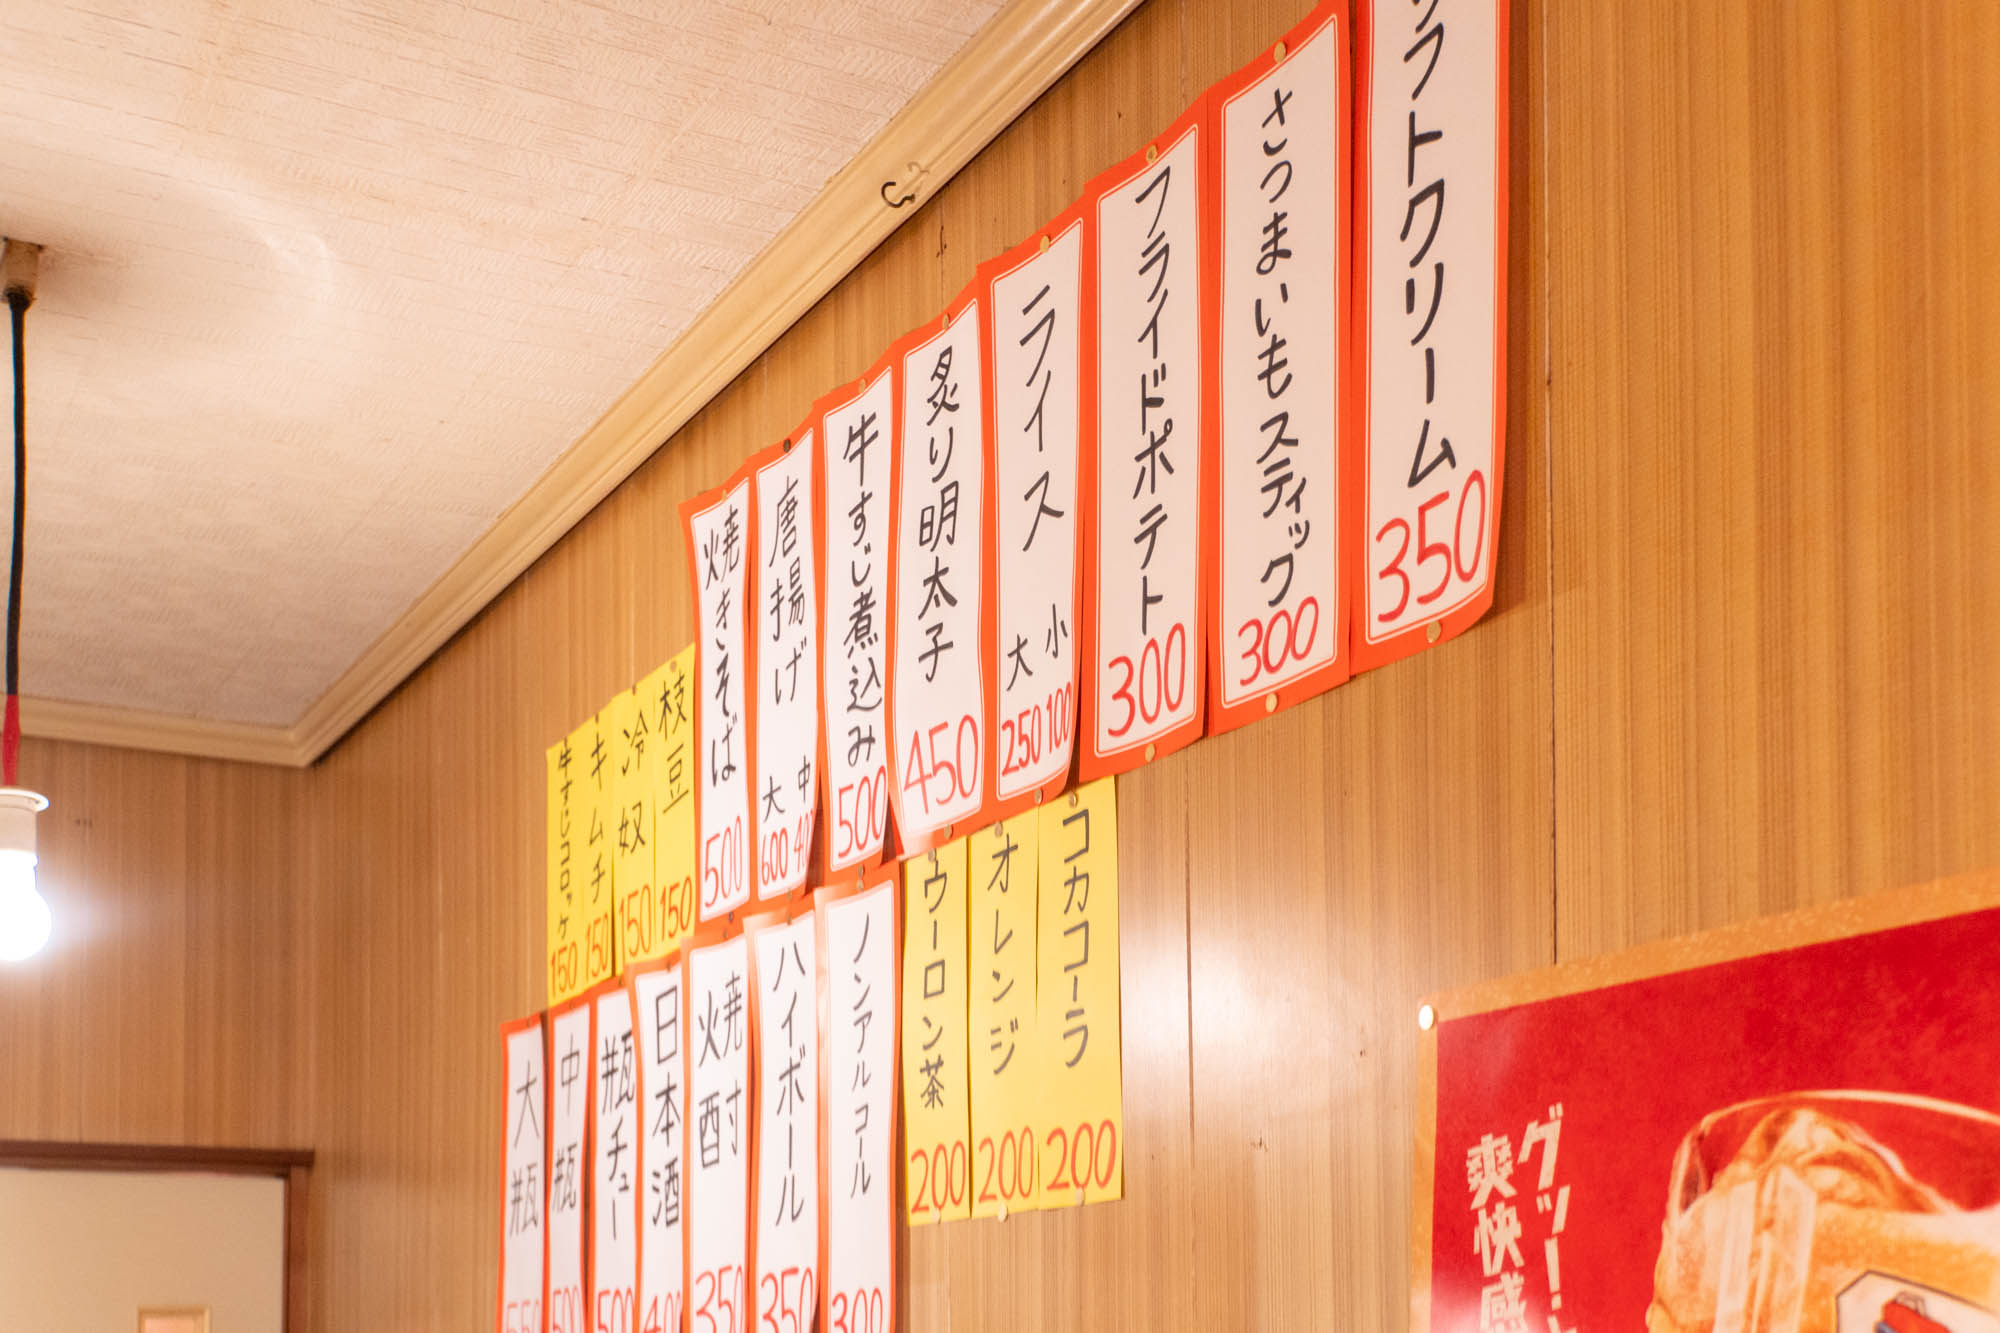 フトクリーム
350
さつまいもスティック
300
フライドポテト
300
ライス
小
100
大
250
炙り明太子
450
牛すじ煮込み
500
唐揚げ
中
400
大
600
焼きそば
500
枝豆
150
冷奴
150
キムチ
150
牛すじコロッケ
150
コカコーラ
200
オレンジ
200
ウーロン茶
200
ノンアルコール
300
ハイボール
350
焼酎
350
日本酒
400
瓶チュー
500
中瓶
500
大瓶
550
グッ!
爽快感